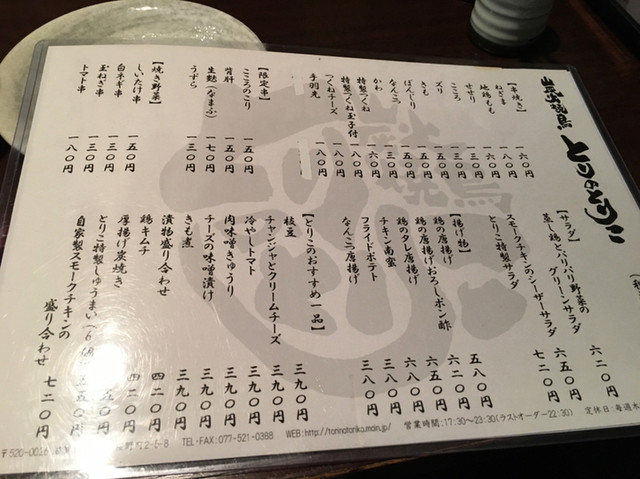 炭火焼鳥 とりのとりこ
【串焼き】
ねぎま 一六〇円
地鶏もも 一八〇円
せせり 一六〇円
こころ 一三〇円
ズリ 一三〇円
きも 一五〇円
ぼんじり 一五〇円
なんこつ 一五〇円
かわ 一三〇円
特製つくね 一六〇円
特製つくね玉子付 一八〇円
つくねチーズ 一八〇円
手羽先 一八〇円
【限定串】
こころのこり 一五〇円
背肝 一五〇円
生麩（なまふ） 一七〇円
うずら 一三〇円
【焼き野菜】
しいたけ串 一五〇円
白ネギ串 一三〇円
玉ねぎ串 一三〇円
トマト串 一八〇円
【サラダ】
蒸し鶏とパリパリ野菜の
グリーンサラダ 六二〇円
スモークチキンのシーザーサラダ 六五〇円
とりこ特製サラダ 七二〇円
【揚げ物】
鶏の唐揚げ 五八〇円
鶏の唐揚げおろしポン酢 六二〇円
鶏のタレ唐揚げ 六五〇円
チキン南蛮 六八〇円
フライドポテト 三八〇円
なんこつ唐揚げ 三八〇円
【とりこのおすすめ一品】
枝豆 三九〇円
チャンジャとクリームチーズ 三九〇円
冷やしトマト 三九〇円
肉味噌きゅうり 三九〇円
チーズの味噌漬け 三九〇円
きも煮 三九〇円
漬物盛り合わせ 四二〇円
鶏キムチ 四二〇円
厚揚げ炭焼き 五〇円
とりこ特製しゅうまい 五〇円
自家製スモークチキンの
盛り合わせ 七二〇円
〒520-00 町2-5-8 TEL・FAX:077-521-0388 WEB:http://torinotoriko.main.jp/ 営業時間:17:30～23:30(ラストオーダー22:30) 定休日:毎週木